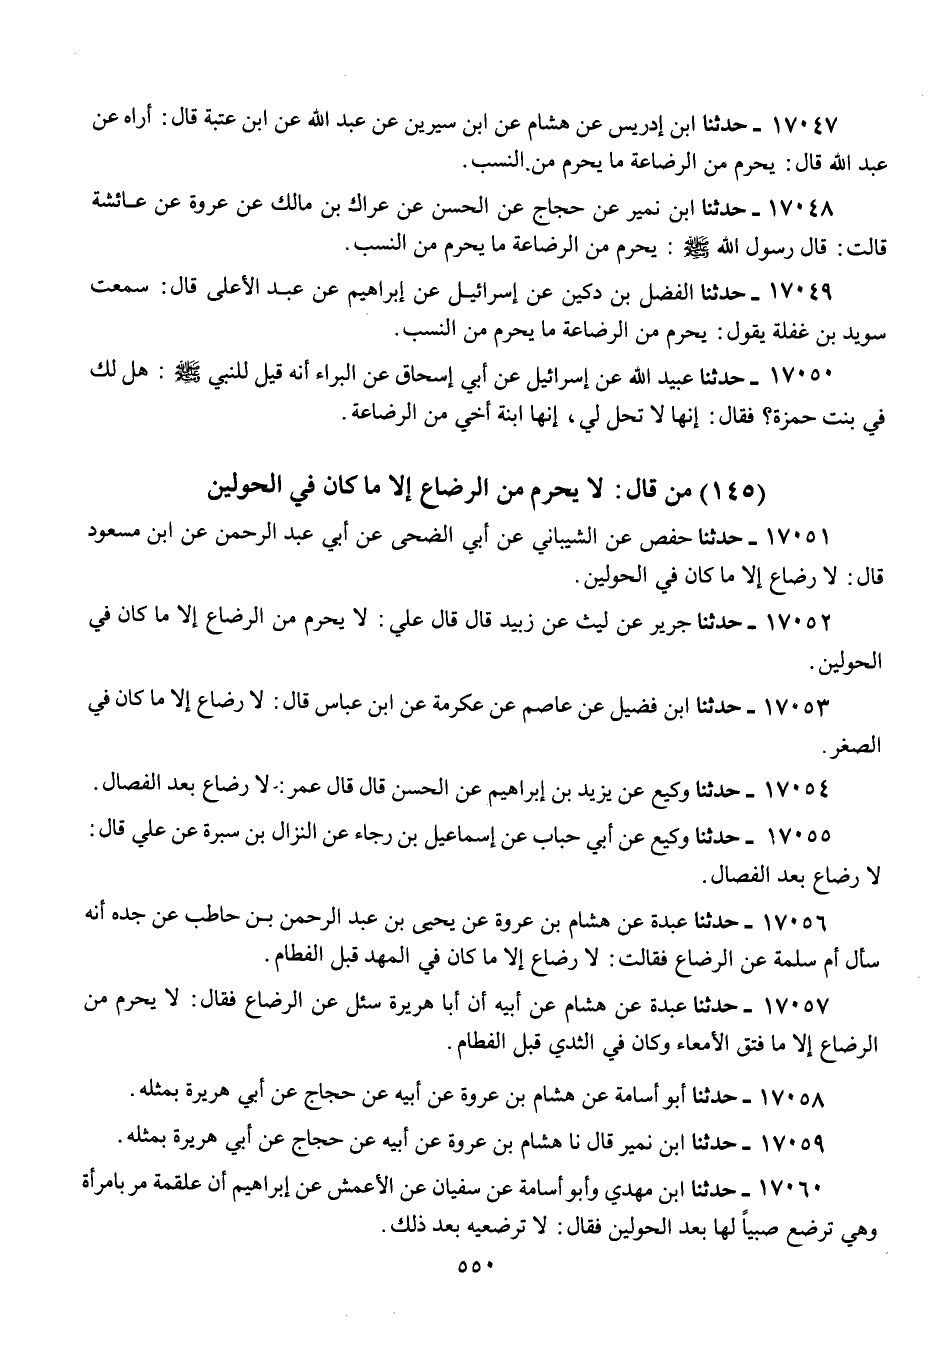 ١٧٠٤٧ ـ حدثنا ابن إدريس عن هشام عن ابن سيرين عن عبد الله عن ابن عتبة قال: أراه عن
عبد الله قال: يحرم من الرضاعة ما يحرم من النسب.
١٧٠٤٨ ـ حدثنا ابن نمير عن حجاج عن الحسن عن عراك بن مالك عن عروة عن عـائشة
قالت: قال رسول الله ﷺ : يحرم من الرضاعة ما يحرم من النسب.
١٧٠٤٩ ـ حدثنا الفضل بن دكين عن إسرائيـل عن إبراهيم عن عبـد الأعلى قال: سمعت
سويد بن غفلة يقول: يحرم من الرضاعة ما يحرم من النسب.
١٧٠٥٠ ـ حدثنا عبيد الله عن إسرائيل عن أبي إسحاق عن البراء أنه قيل للنبي ﷺ : هل لك
في بنت حمزة؟ فقال: إنها لا تحل لي، إنها ابنة أخي من الرضاعة.
(١٤٥) من قال: لا يحرم من الرضاع إلا ما كان في الحولين
١٧٠٥١ ـ حدثنا حفص عن الشيباني عن أبي الضحى عن أبي عبد الرحمن عن ابن مسعود
قال: لا رضاع إلا ما كان في الحولين.
١٧٠٥٢ ـ حدثنا جرير عن ليث عن زبيد قال قال علي: لا يحرم من الرضاع إلا ما كان في
الحولين.
١٧٠٥٣ ـ حدثنا ابن فضيل عن عاصم عن عكرمة عن ابن عباس قال: لا رضاع إلا ما كان في
الصغر.
١٧٠٥٤ ـ حدثنا وكيع عن يزيد بن إبراهيم عن الحسن قال قال عمر: لا رضاع بعد الفصال.
١٧٠٥٥ ـ حدثنا وكيع عن أبي حباب عن إسماعيل بن رجاء عن النزال بن سبرة عن علي قال:
لا رضاع بعد الفصال.
١٧٠٥٦ ـ حدثنا عبدة عن هشام بن عروة عن يحيى بن عبد الرحمن بـن حاطب عن جده أنه
سأل أم سلمة عن الرضاع فقالت: لا رضاع إلا ما كان في المهد قبل الفطام.
١٧٠٥٧ ـ حدثنا عبدة عن هشام عن أبيه أن أبا هريرة سئل عن الرضاع فقال: لا يحرم من
الرضاع إلا ما فتق الأمعاء وكان في الثدي قبل الفطام.
١٧٠٥٨ ـ حدثنا أبو أسامة عن هشام بن عروة عن أبيه عن حجاج عن أبي هريرة بمثله.
١٧٠٥٩ ـ حدثنا ابن نمير قال نا هشام بن عروة عن أبيه عن حجاج عن أبي هريرة بمثله.
١٧٠٦٠ ـ حدثنا ابن مهدي وأبو أسامة عن سفيان عن الأعمش عن إبراهيم أن علقمة مر بامرأة
وهي ترضع صبياً لها بعد الحولين فقال: لا ترضعيه بعد ذلك.
٥٥٠